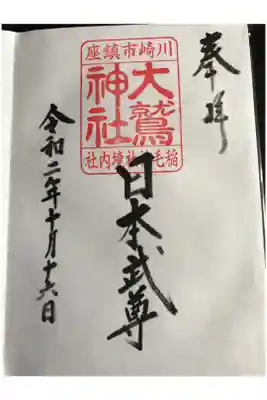 奉拝
川崎市鎮座
大鷲神社
稲毛神社境内社
日本武尊
令和二年十月十六日